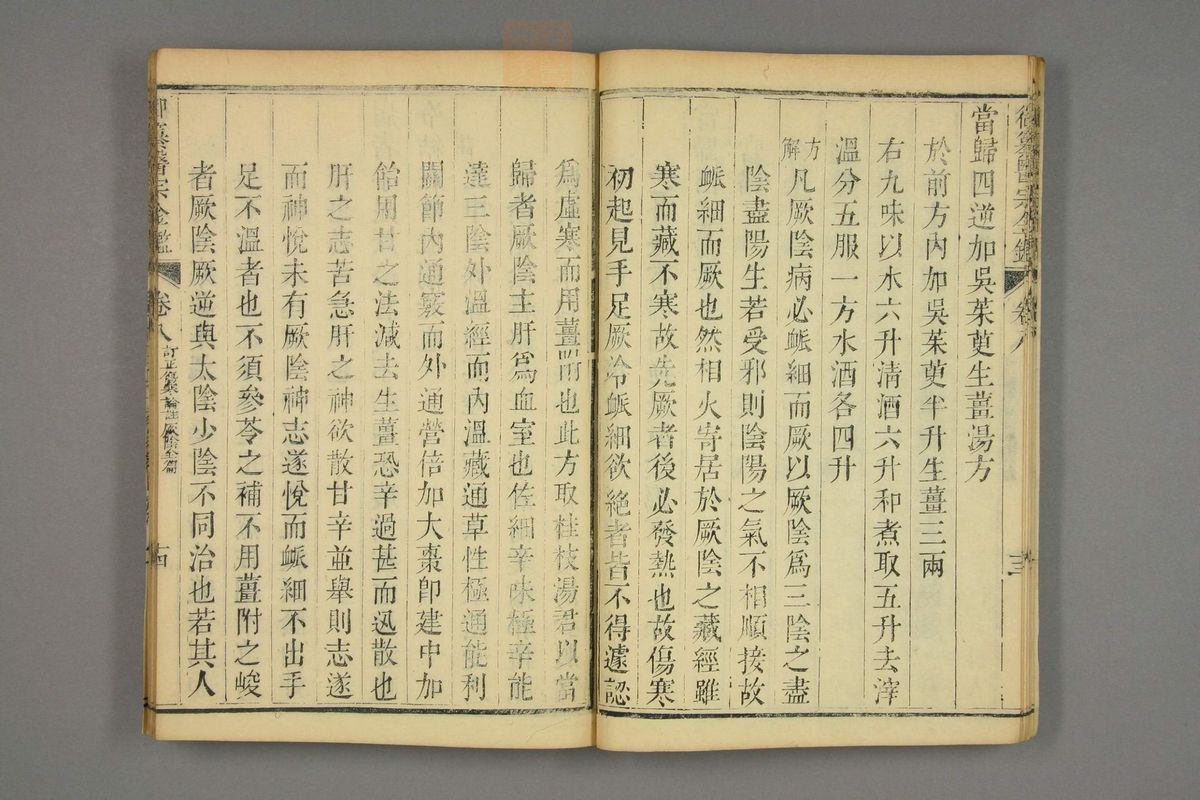 當歸四逆加吳茱萸生薑湯方
於前方內加吳茱萸半升生薑三兩
右九味以水六升淸酒六升和煮取五升去滓
溫分五服一方水酒各四升
方解凡厥陰病必䘑細而厥以厥陰爲三陰之盡
陰盡陽生若受邪則陰陽之氣不相順接故
䘑細而厥也然相火寄居於厥陰之藏經雖
寒而藏不寒故先厥者後必發熱也故傷寒
初起見手足厥冷䘑細欲絕者皆不得遽認
爲虛寒而用薑附也此方取桂枝湯君以當
歸者厥陰主肝爲血室也佐細辛味極辛能
達三陰外溫經而內溫藏通草性極通能利
關節內通竅而外通營倍加大棗卽建中加
飴用甘之法減去生薑恐辛過甚而迅散也
肝之志苦急肝之神欲散甘辛並舉則志遂
而神悅未有厥陰神志遂悅而䘑細不出手
足不溫者也不須參苓之補不用薑附之峻
者厥陰厥逆與太陰少陰不同治也若其人
御纂醫宗金鑑
卷八
十四